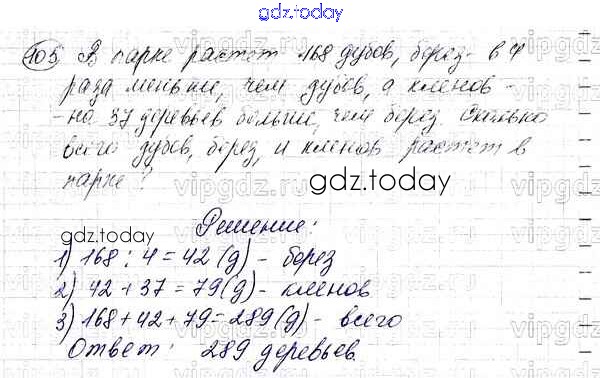 gdz.today
105 В парке растет 168 дубов, берез - в 4
раза меньше, чем дубов, а кленов -
- на 37 деревьев больше, чем берез. Сколько
всего дубов, берез, и кленов растет в
парке?
gdz.today
Решение:
gdz.today
1) 168 : 4 = 42 (д) - берез
2) 42 + 37 = 79 (д) - кленов
3) 168 + 42 + 79 = 289 (д) - всего
Ответ: 289 деревьев